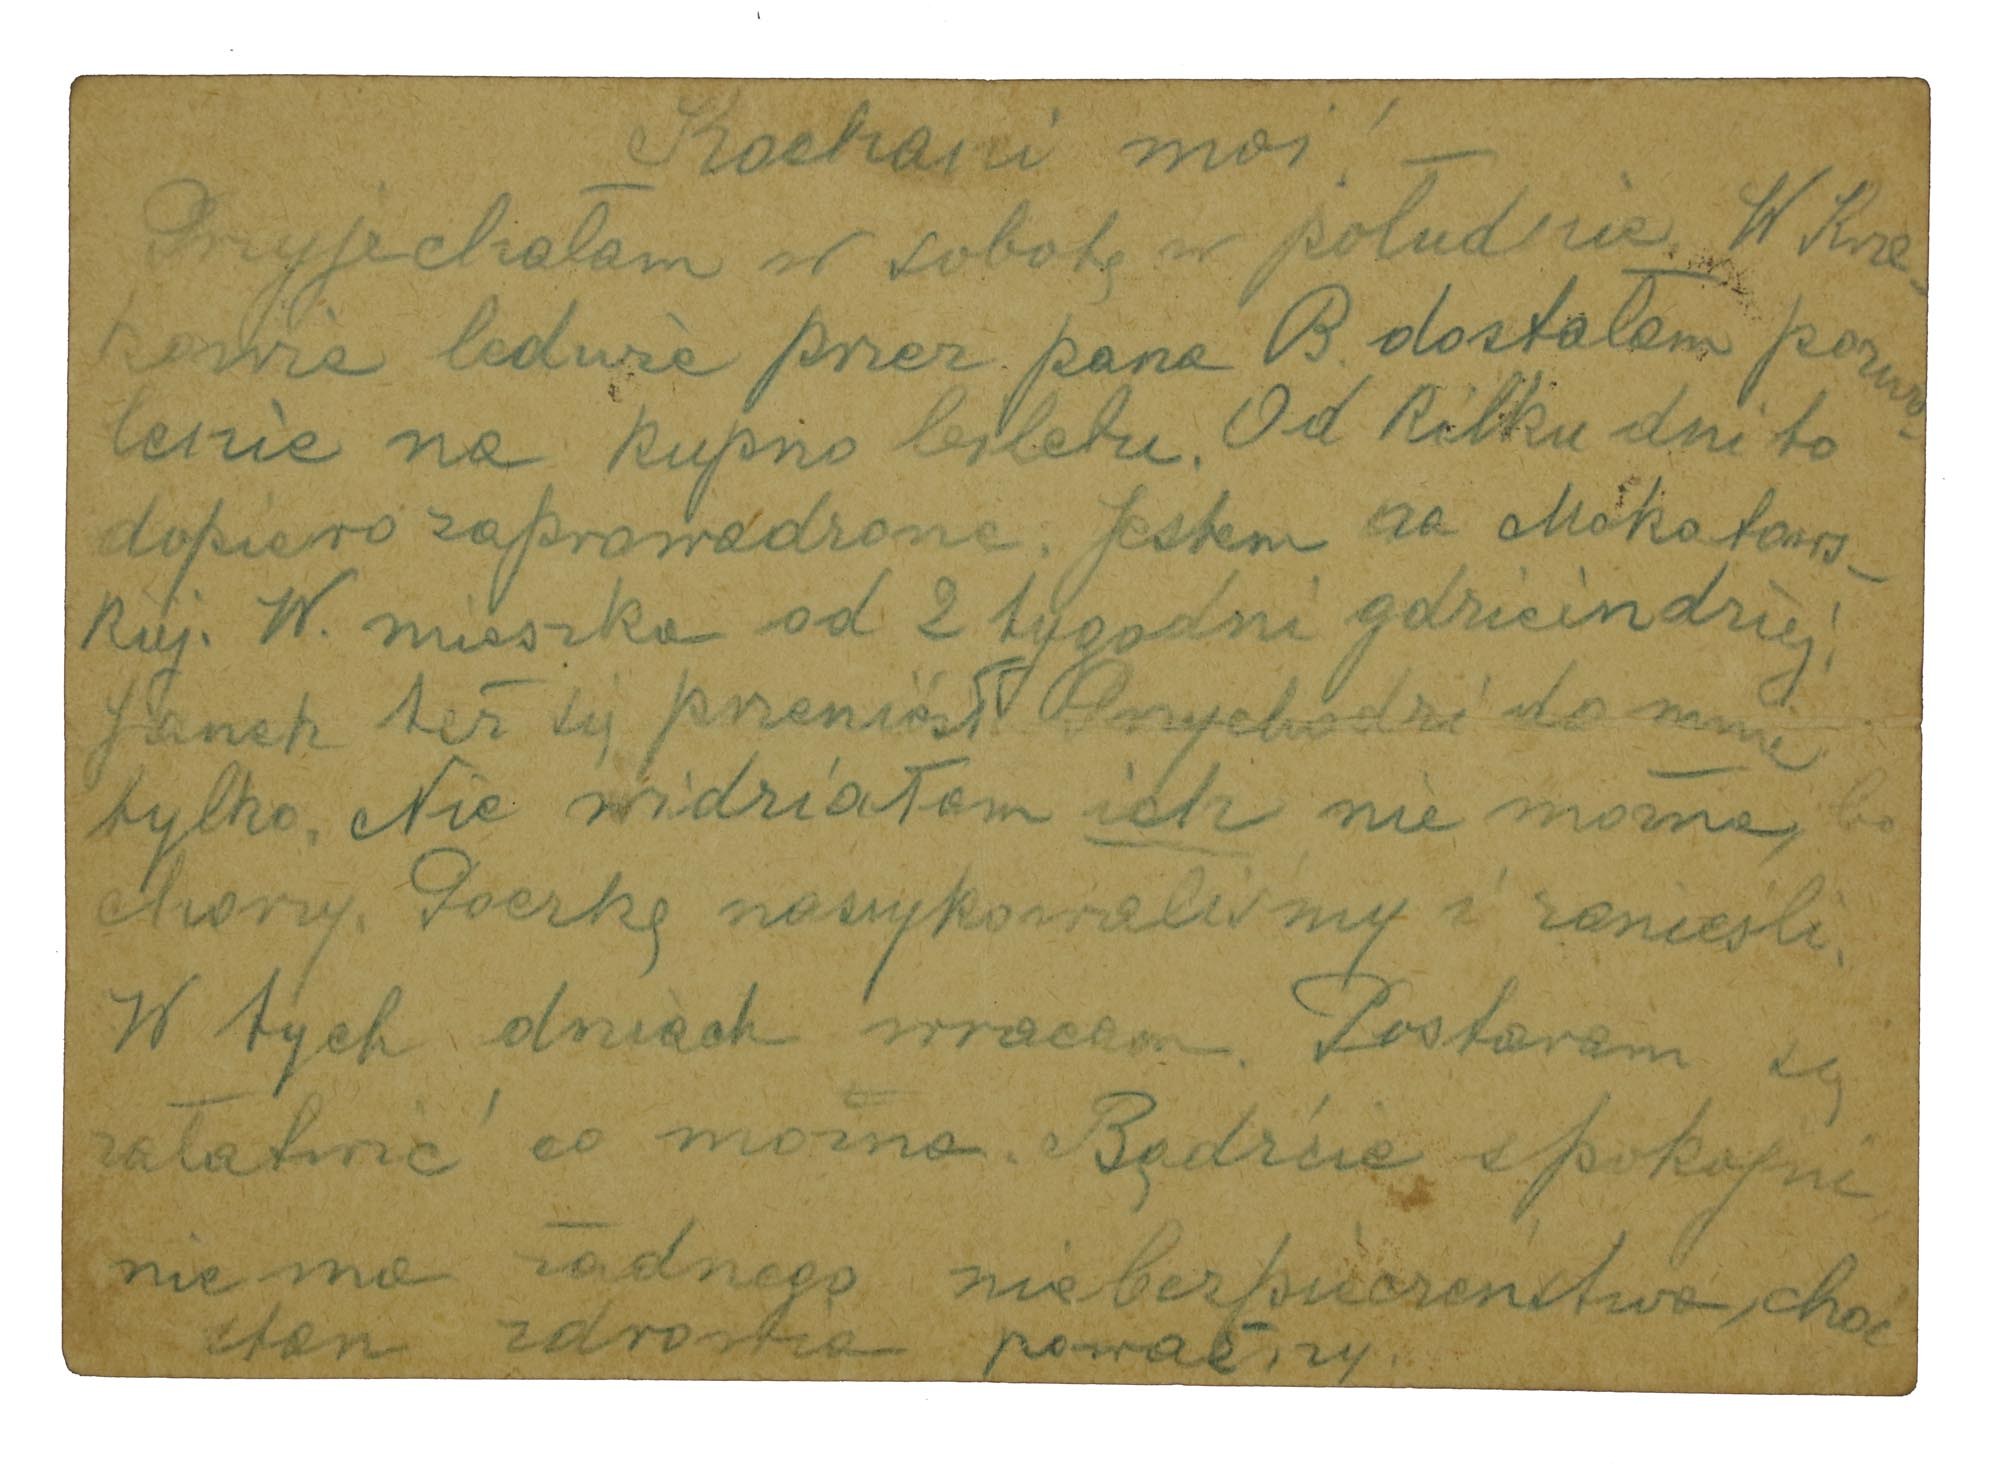 Kochani moi!
Przyjechałam w sobotę w południe. W Kra-
kowie ledwie przez pana B. dostałam pozwo-
lenie na kupno biletu. Od kilku dni to
dopiero zaprowadzone. Jestem na Mokotows-
kiej. W. mieszka od 2 tygodni gdzieindziej,
Janek też się przeniósł Przychodzi do mnie
tylko. Nie widziałam ich nie można, bo
chory. Paczkę naszykowaliśmy i zanieśli.
W tych dniach wracam. Postaram się
załatwić co można. Bądźcie spokojni
nie ma żadnego niebezpieczeństwa, choć
stan zdrowia poważny.